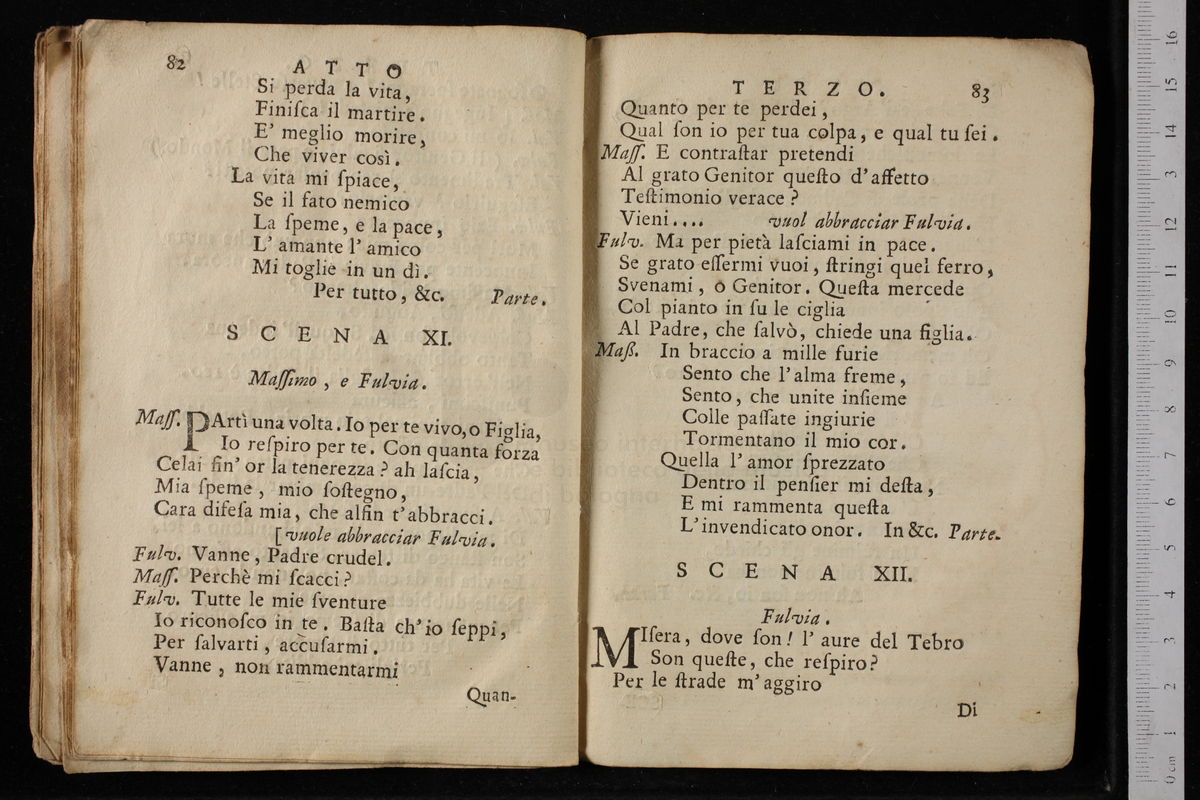 82
ATTO
Si perda la vita,
Finiſca il martire.
E' meglio morire,
Che viver così.
La vita mi ſpiace,
Se il fato nemico
La ſpeme, e la pace,
L' amante l' amico
Mi toglie in un dì.
Per tutto, &c. Parte.
SCENA XI.
Maſſimo, e Fulvia.
Maſſ. PArtì una volta. Io per te vivo, o Figlia,
Io reſpiro per te. Con quanta forza
Celai ſin' or la tenerezza? ah laſcia,
Mia ſpeme, mio ſoſtegno,
Cara difeſa mia, che alfin t'abbracci.
[vuole abbracciar Fulvia.
Fulv. Vanne, Padre crudel.
Maſſ. Perchè mi ſcacci?
Fulv. Tutte le mie ſventure
Io riconoſco in te. Baſta ch'io ſeppi,
Per ſalvarti, accuſarmi.
Vanne, non rammentarmi
Quan-
TERZO. 83
Quanto per te perdei,
Qual ſon io per tua colpa, e qual tu ſei.
Maſſ. E contraſtar pretendi
Al grato Genitor queſto d'affetto
Teſtimonio verace?
Vieni.... vuol abbracciar Fulvia.
Fulv. Ma per pietà laſciami in pace.
Se grato eſſermi vuoi, ſtringi quel ferro,
Svenami, o Genitor. Queſta mercede
Col pianto in ſu le ciglia
Al Padre, che ſalvò, chiede una figlia.
Maß. In braccio a mille furie
Sento che l'alma freme,
Sento, che unite inſieme
Colle paſſate ingiurie
Tormentano il mio cor.
Quella l'amor ſprezzato
Dentro il penſier mi deſta,
E mi rammenta queſta
L'invendicato onor. In &c. Parte.
SCENA XII.
Fulvia.
MIſera, dove ſon! l'aure del Tebro
Son queſte, che reſpiro?
Per le ſtrade m'aggiro
Di
0 cm 1 2 3 4 5 6 7 8 9 10 11 12 13 14 15 16